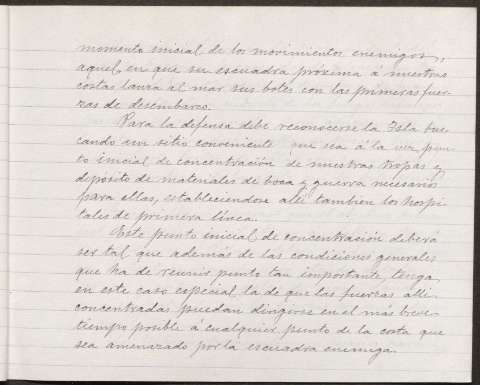 momento inicial de los movimientos enemigos,
aquel en que su escuadra próxima á nuestras
costas lanza al mar sus botes con las primeras fuer-
zas de desembarco.
Para la defensa debe reconocerse la Isla bus-
cando un sitio conveniente que sea á la vez pun-
to inicial de concentración de nuestras tropas y
depósito de materiales de boca y guerra necesarios
para ellas, estableciendose allí tambien los hospi-
tales de primera línea.
Este punto inicial de concentrasión deberá
ser tal que además de las condiciones generales
que ha de reunir punto tan importante, tenga
en este caso especial la de que las fuerzas allí
concentradas puedan dirigirse en el más breve
tiempo posible á cualquier punto de la costa que
sea amenazado por la escuadra enemiga.